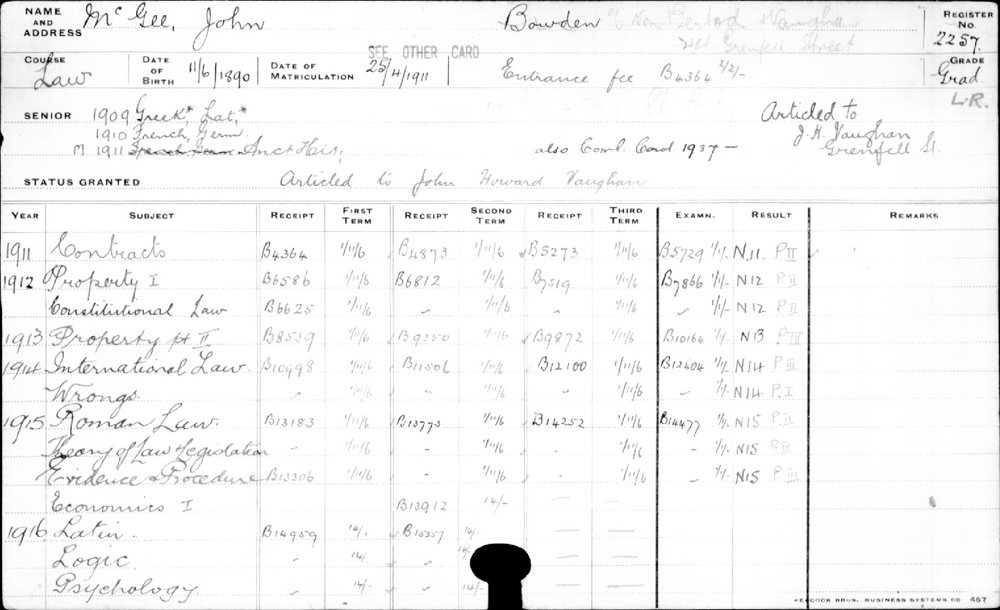 NAME AND ADDRESS McGee, John Bowden c/o Vaughan REGISTER No. 2257
Grenfell Street
SEE OTHER CARD
COURSE Law DATE OF BIRTH 11/6/1890 DATE OF MATRICULATION 25/4/1911 Entrance fee B4364 2/2/- GRADE Grad.
L.R.
SENIOR 1909 Greek,* Lat,* Articled to
1910 French, Germ. J. H. Vaughan
M 1911 French Germ Anct His, also Coml. Card 1937 — Grenfell St.
STATUS GRANTED Articled to John Howard Vaughan
YEAR SUBJECT RECEIPT FIRST TERM RECEIPT SECOND TERM RECEIPT THIRD TERM EXAMN. RESULT REMARKS
1911 Contracts B4364 1/11/6 B4873 1/11/6 B5273 1/11/6 B5729 1/1/- N11. P II
1912 Property I B6586 1/11/6 B6812 1/11/6 B7519 1/11/6 B7866 1/1/- N12 P II
Constitutional Law B6625 1/11/6 " 1/11/6 1/11/6 " 1/1/- N12 P II
1913 Property pt II B8539 1/11/6 B9350 1/11/6 B9872 1/11/6 B10164 1/1/- N13 P III
1914 International Law. B10998 1/11/6 B11506 1/11/6 B12100 1/11/6 B12404 1/1/- N14 P III
Wrongs. " 1/11/6 " 1/11/6 " 1/11/6 " 1/1/- N14 P. I
1915 Roman Law. B13183 1/11/6 B13773 1/11/6 B14252 1/11/6 B14477 1/1/- N15 P. II
Theory of Law & Legislation " 1/11/6 - 1/11/6 " 1/11/6 - 1/1/- N15 P. III
Evidence & Procedure B13306 1/11/6 " 1/11/6 1/11/6 " 1/1/- N15 P III
Economics I B13912 14/- — —
1916 Latin. B14959 14/- B15557 14/- — —
Logic. " 14/- " 14/- — —
Psychology. " 14/- " 14/- — —
PEACOCK BROS. BUSINESS SYSTEMS CO 457